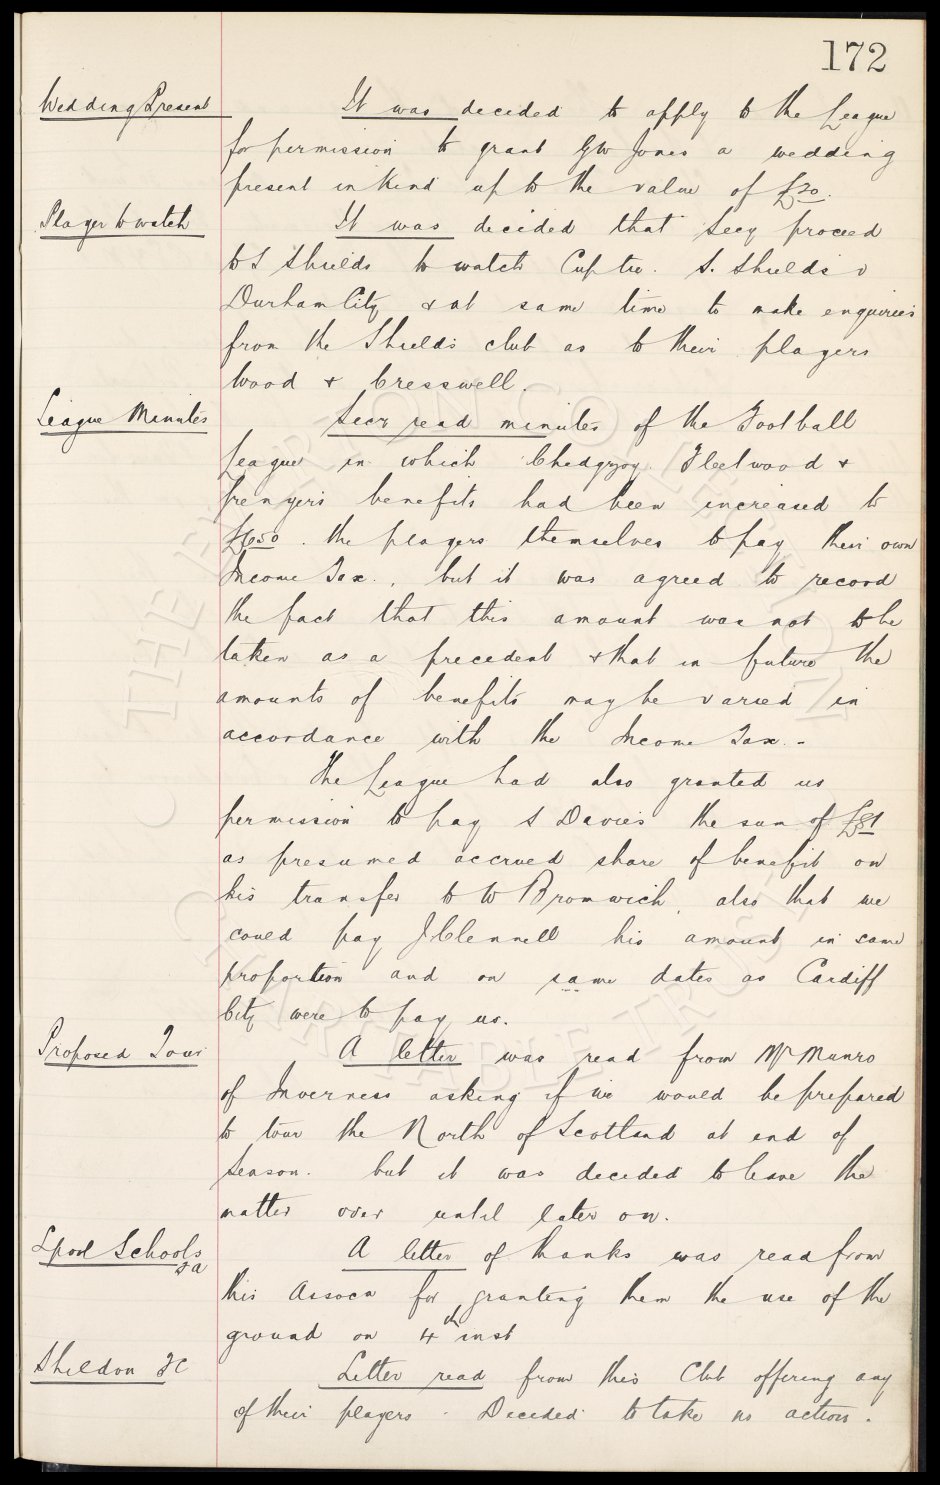 172
Wedding Present
It was decided to apply to the League
for permission to grant GW Jones a wedding
present in kind up to the value of £20.
Player to watch
It was decided that Secy proceed
to S Shields to watch Cup tie. S. Shields v
Durham City & at same time to make enquiries
from the Shields club as to their players
Wood & Cresswell.
League Minutes
Secy read minutes of the Football
League in which Chedgzoy. Fleetwood &
Grenyer's benefits had been increased to
£650. the players themselves to pay their own
Income Tax., but it was agreed to record
the fact that this amount was not to be
taken as a precedent & that in future the
amounts of benefits may be varied in
accordance with the Income Tax.-
The League had also granted us
permission to pay S Davies the sum of £81
as presumed accrued share of benefit on
his transfer to W Bromwich, also that we
could pay J Clennell his amount in same
proportion and on same dates as Cardiff
City were to pay us.
Proposed Tour
A letter was read from Mr Munro
of Inverness asking if we would be prepared
to tour the North of Scotland at end of
Season. but it was decided to leave the
matter over until later on.
Lpool Schools
FA
A letter of thanks was read from
this Assocn for granting them the use of the
ground on 4th inst
Shildon FC
Letter read from this Club offering any
of their players. Decided to take no action.
THE EVERTON COLLECTION
CHARITABLE TRUST